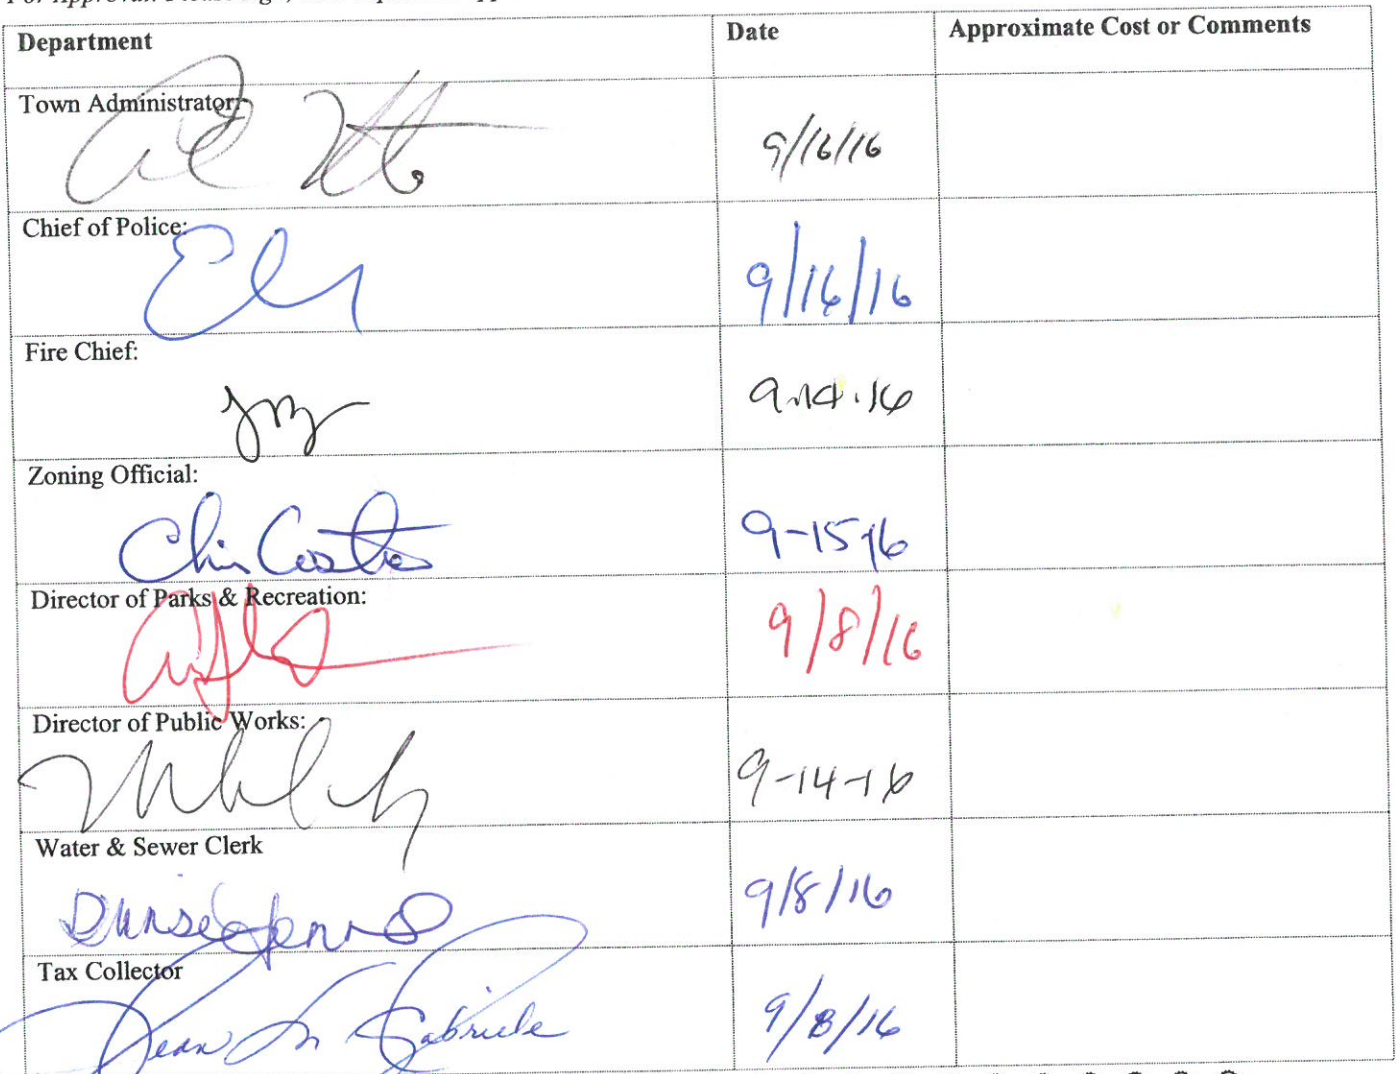 Department Date Approximate Cost or Comments
Town Administrator:
9/16/16
Chief of Police:
9/16/16
Fire Chief:
9.14.16
Zoning Official:
Chris Costa 9-15-16
Director of Parks & Recreation:
9/8/16
Director of Public Works:
9-14-16
Water & Sewer Clerk
9/8/16
Tax Collector
Jean M Gabriele 9/8/16